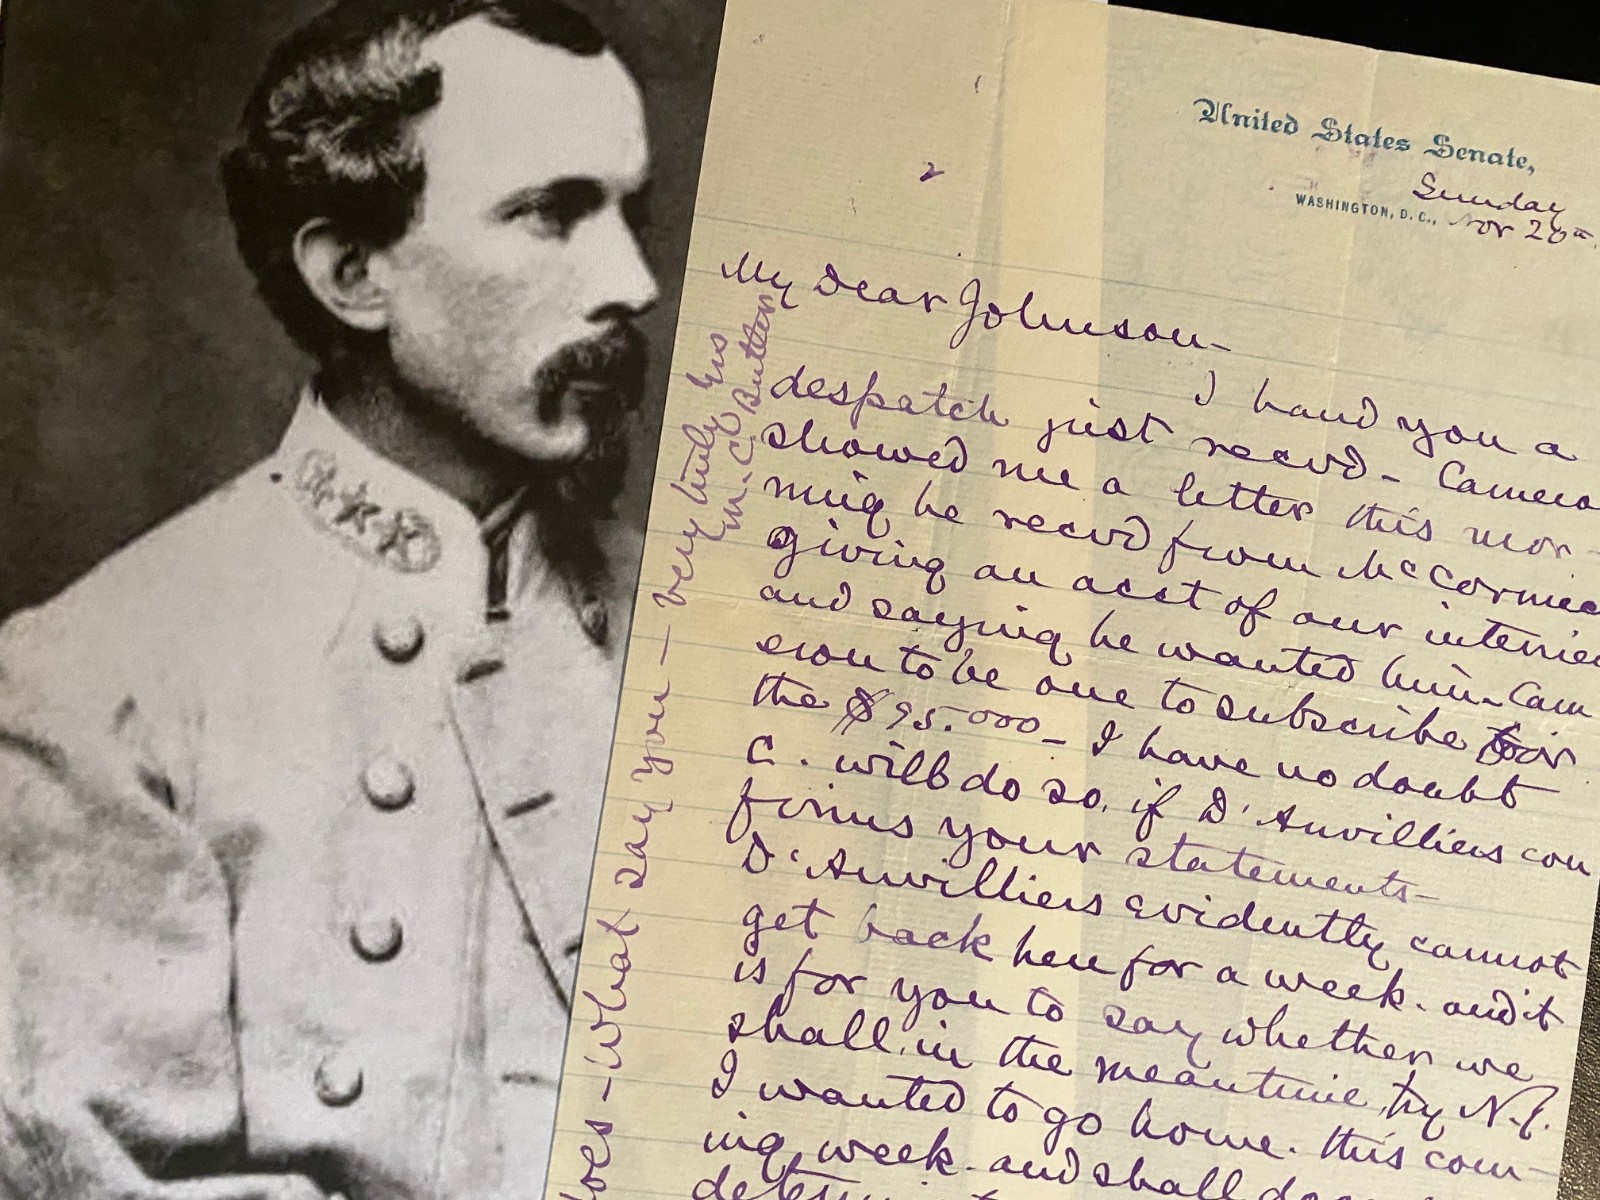 United States Senate,
Sunday
WASHINGTON, D. C., Nov 26th
2
My Dear Johnson-
I hand you a
despatch just recvd - Camero
showed me a letter this mor-
ning he recvd from McCormic
giving an acct of our intervie
and saying he wanted him - Cam
eron to be one to subscribe for
the $95.000 - I have no doubt
C. will do so, if D'Anvilliers con
firms your statements-
D'Anvilliers evidently cannot
get back here for a week. and it
is for you to say whether we
shall, in the meantime, try N.Y.
I wanted to go home. this com-
ing week. and shall
does - what say you - very truly yrs
M. C. Butler